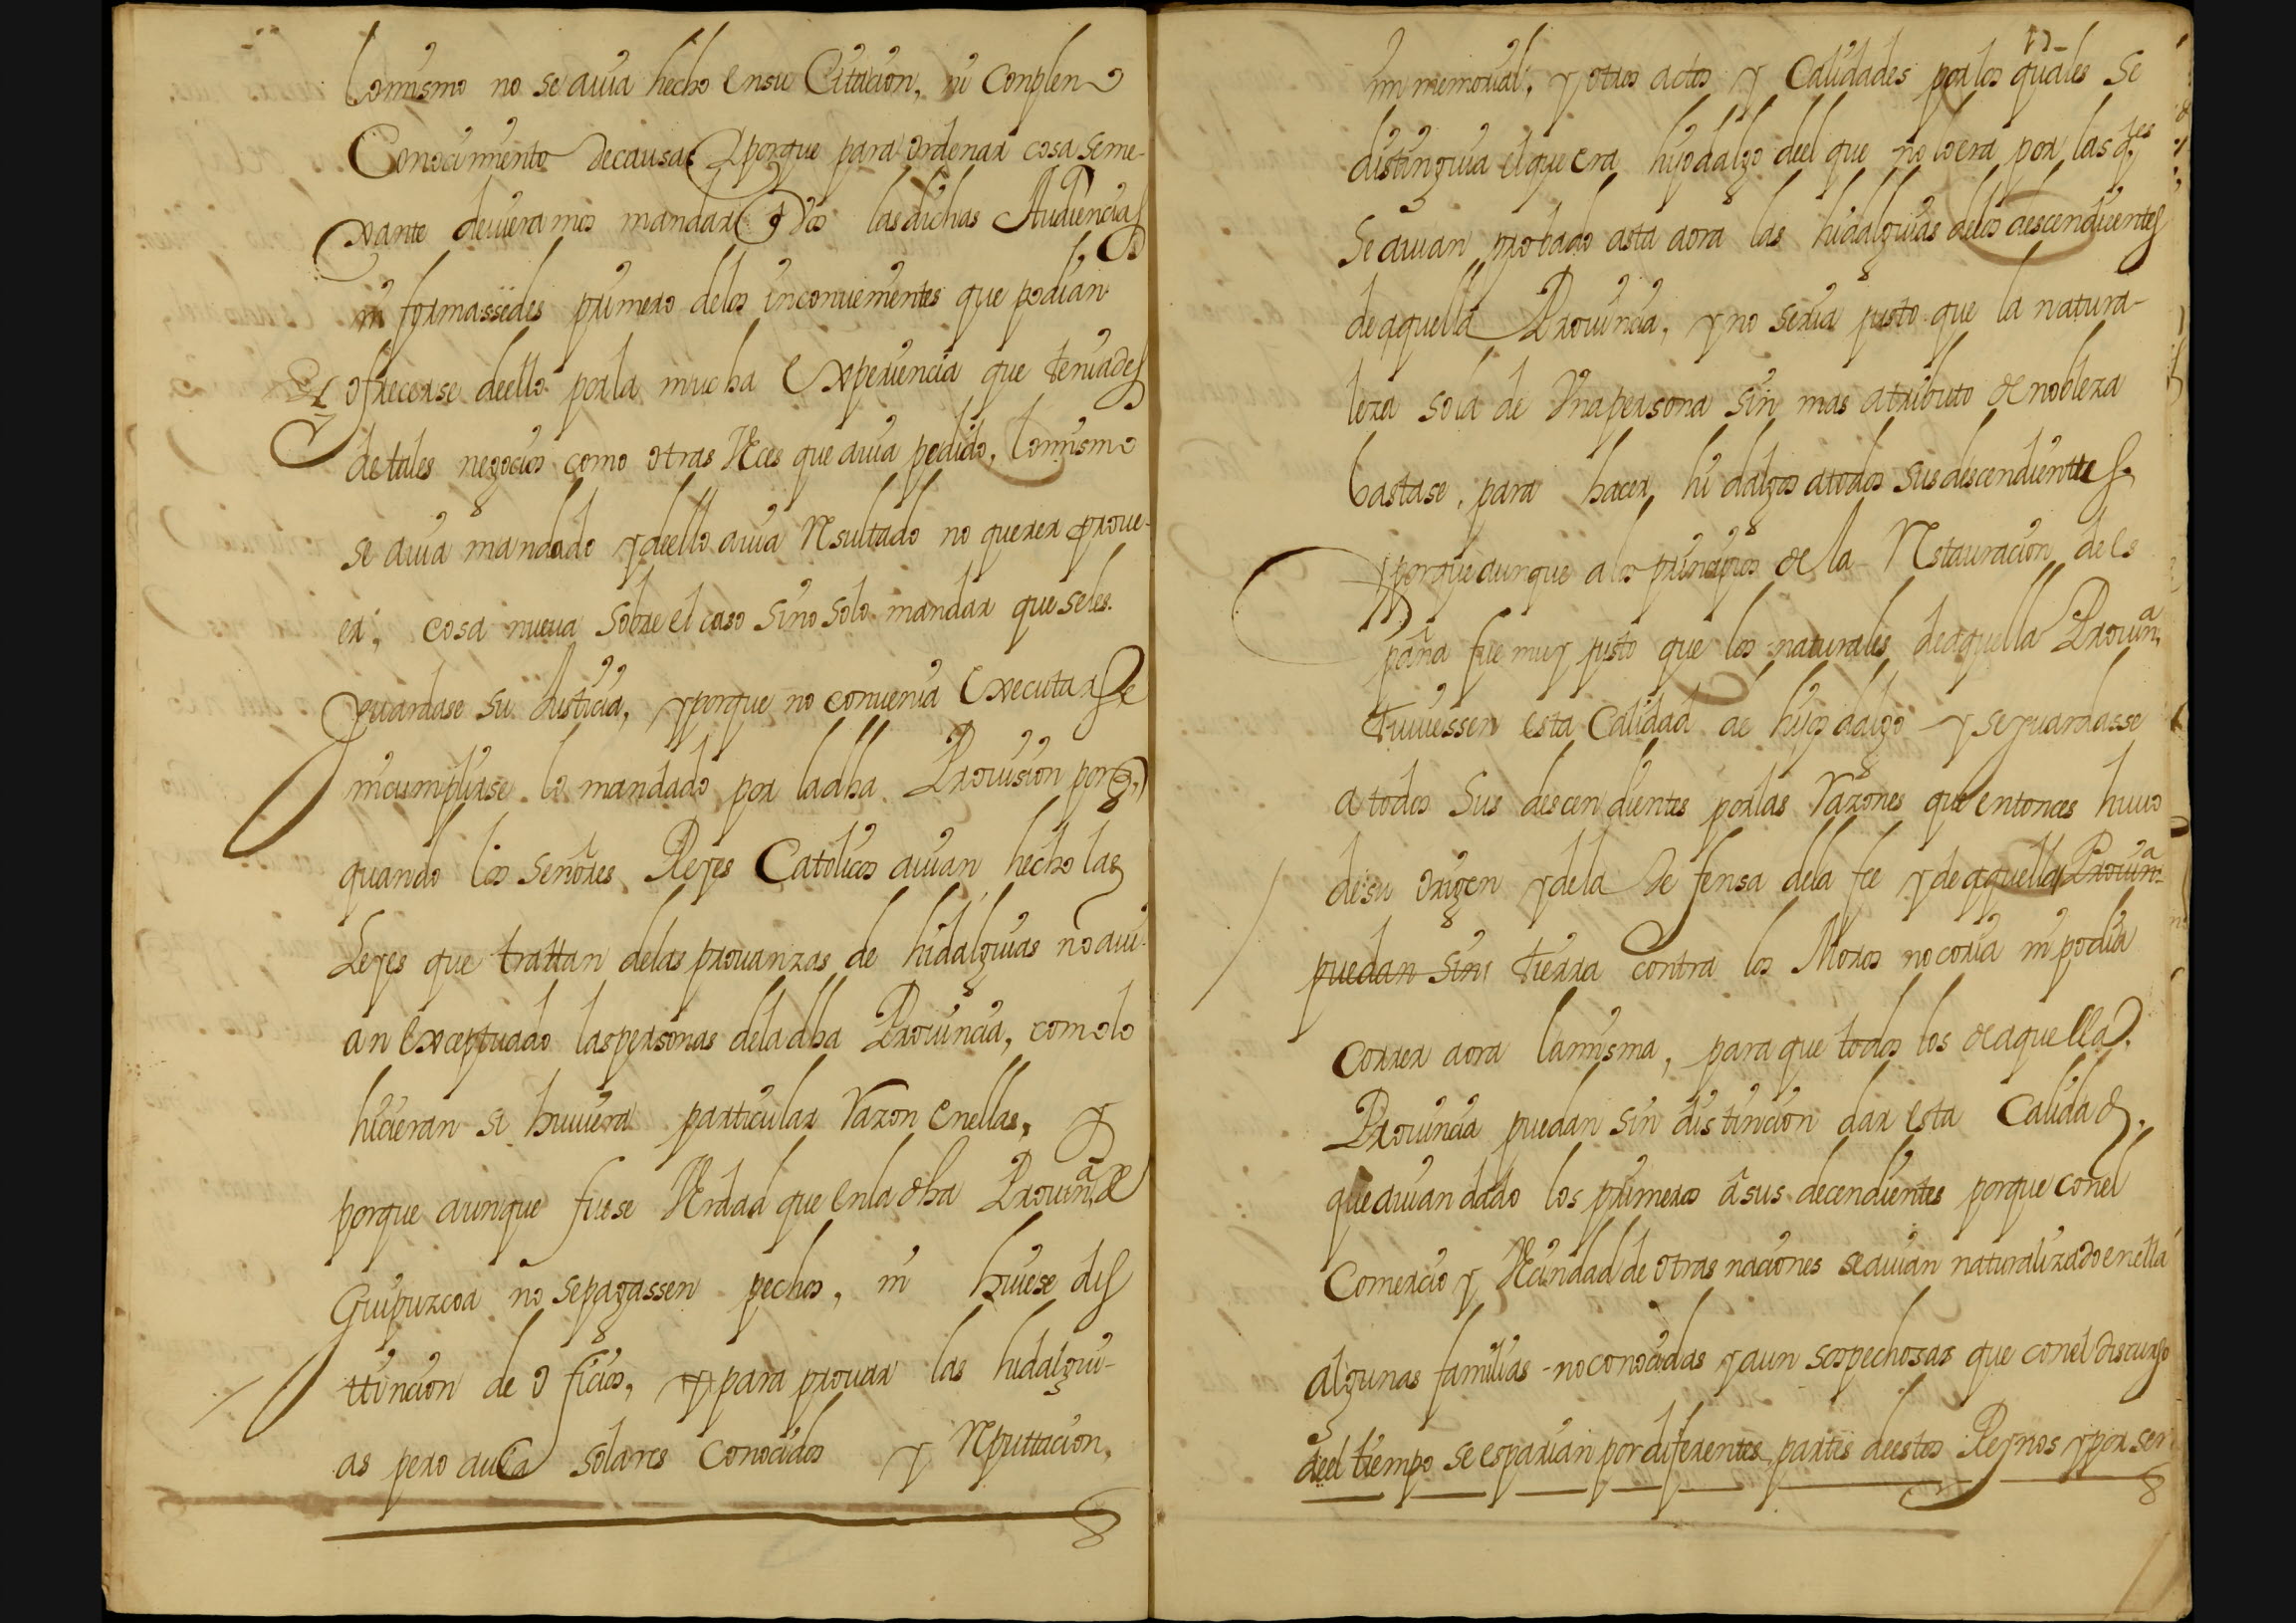 lomismo no se auia hecho ensu Citacion, ni conpleno
Conocimiento decausa, Y porque para ordenar cosa seme-
xante deuieramos mandar q̃ Vos las dichas Audiencias
in formassedes primero delos inconuenientes que podian
ofrecerse deello por la mucha Experiencia que teniades
de tales negocios como otras Veces que auia pedido, lomismo
se auia mandado y deello auia Resultado no querer proue-
er, cosa nueua sobre el caso sino solo mandar que seles
guardase su Justicia, y porque no conuenia Executarse
nicumplirse lo mandado por ladha Prouision porq̃,
quando los Señores Reyes Catolicos auian hecho las
Leyes que trattan delas prouanzas de hidalguias no aui-
an Exceptuado laspersonas deladha Prouincia, comolo
hicieran si huuiera particular Razon enellas, y
porque aunque fuese Verdad que enladha Prouinª, de
Guipuzcoa no sepagassen pechos, ni huiese dis
ttincion de oficios, y para prouar las hidalgui-
as pero auia solares Conocidos y Reputtacion,
17-
im memorial, y otros actos y Calidades por los quales se
distinguia elque era hijodalgo deel que no loera por las q̃les
se auian probado asta aora las hidalguias delos descendientes
deaquella Prouincia, y no seria justo que la natura-
leza sola de Vnapersona sin mas atributo de nobleza
bastase, para hacer, hidalgos atodos susdescendienttes,
y porque aunque a los principios de la Restauracion de Es
paña fue muy justo que los naturales deaquella Prouinª,
tuuiessen esta Calidad de hijosdalgo y se guardasse
a todos Sus descendientes por las Razones que entonces huuo
desu origen y dela defensa dela fee y de aquella Prouinª
puedan sin tierra contra los Moros no coria ni podia
correr aora lamisma, para que todos los de aquella
Prouincia puedan sin distincion dar esta Calidad,
que auian dado los primeros â sus decendientes porque conel
Comercio y Vecindad de otras naciones seauian naturalizado enella
algunas familias noconocidas y aun sospechosas que conel discurso
deel tiempo se esparian por diferentes partes deestos Reynos y por ser